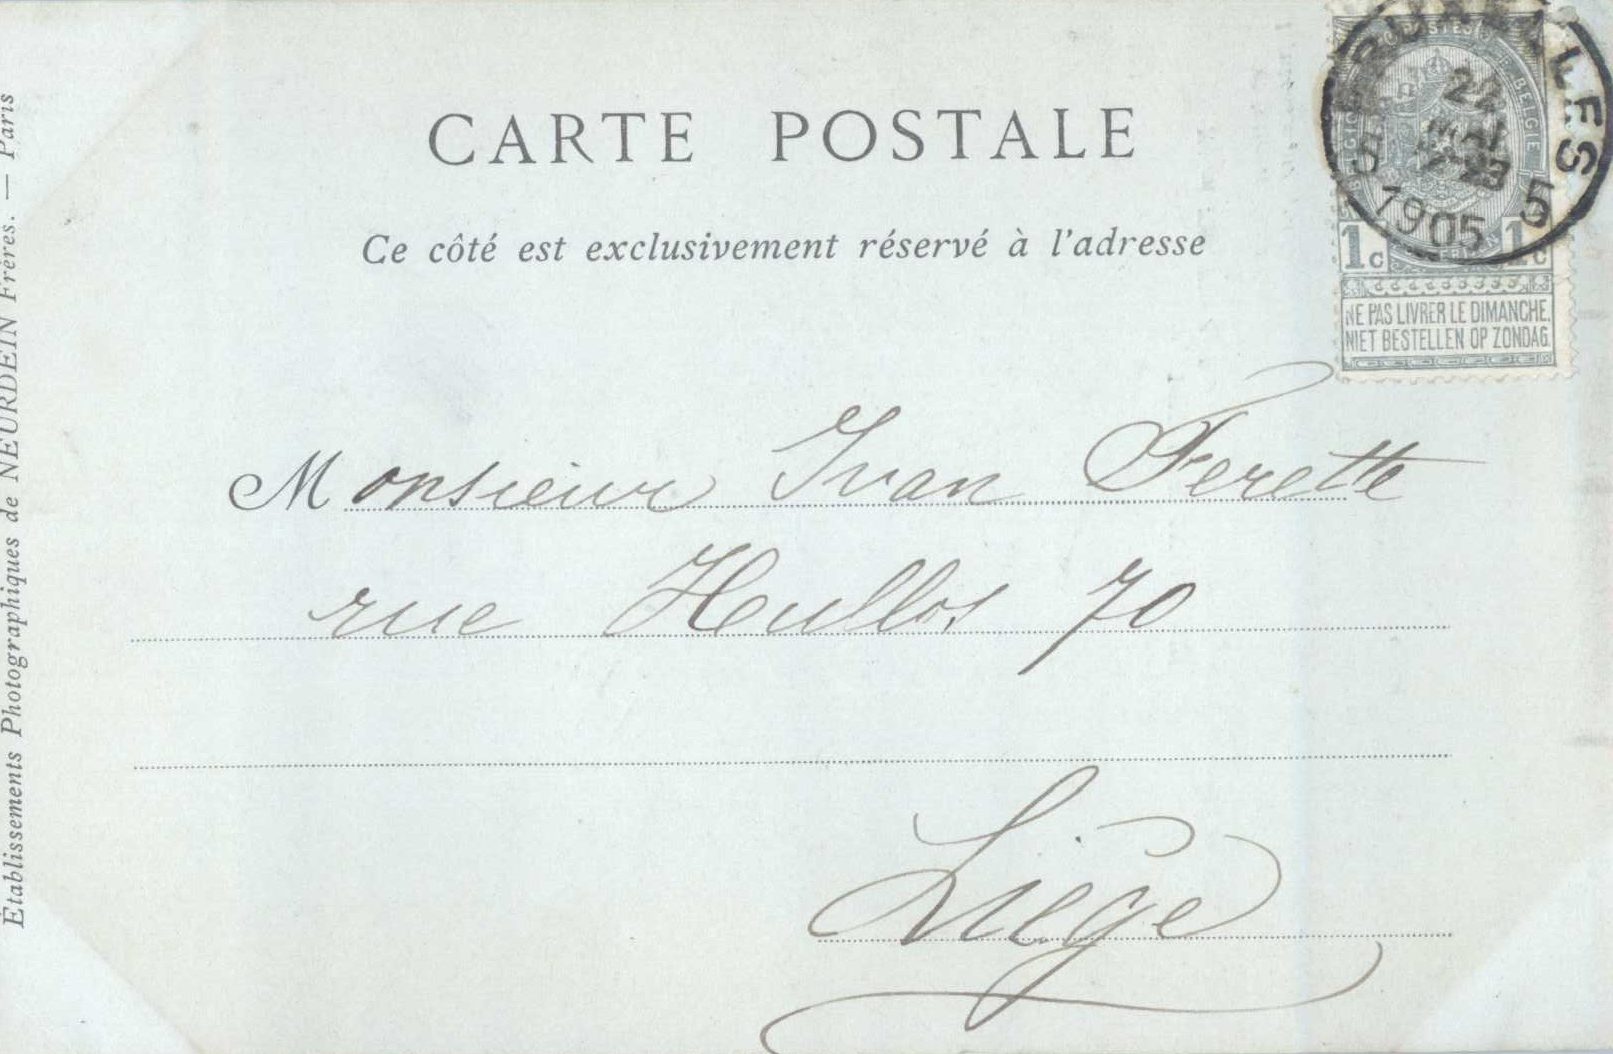 CARTE POSTALE
Ce côté est exclusivement réservé à l'adresse
Monsieur Ivan Ferette
rue Hullos 70
Liége
Établissements Photographiques de NEURDEIN Frères. — Paris
BRUXELLES 5
22
MAI
1905
POSTES BELGE
1c 1c
NE PAS LIVRER LE DIMANCHE.
NIET BESTELLEN OP ZONDAG.